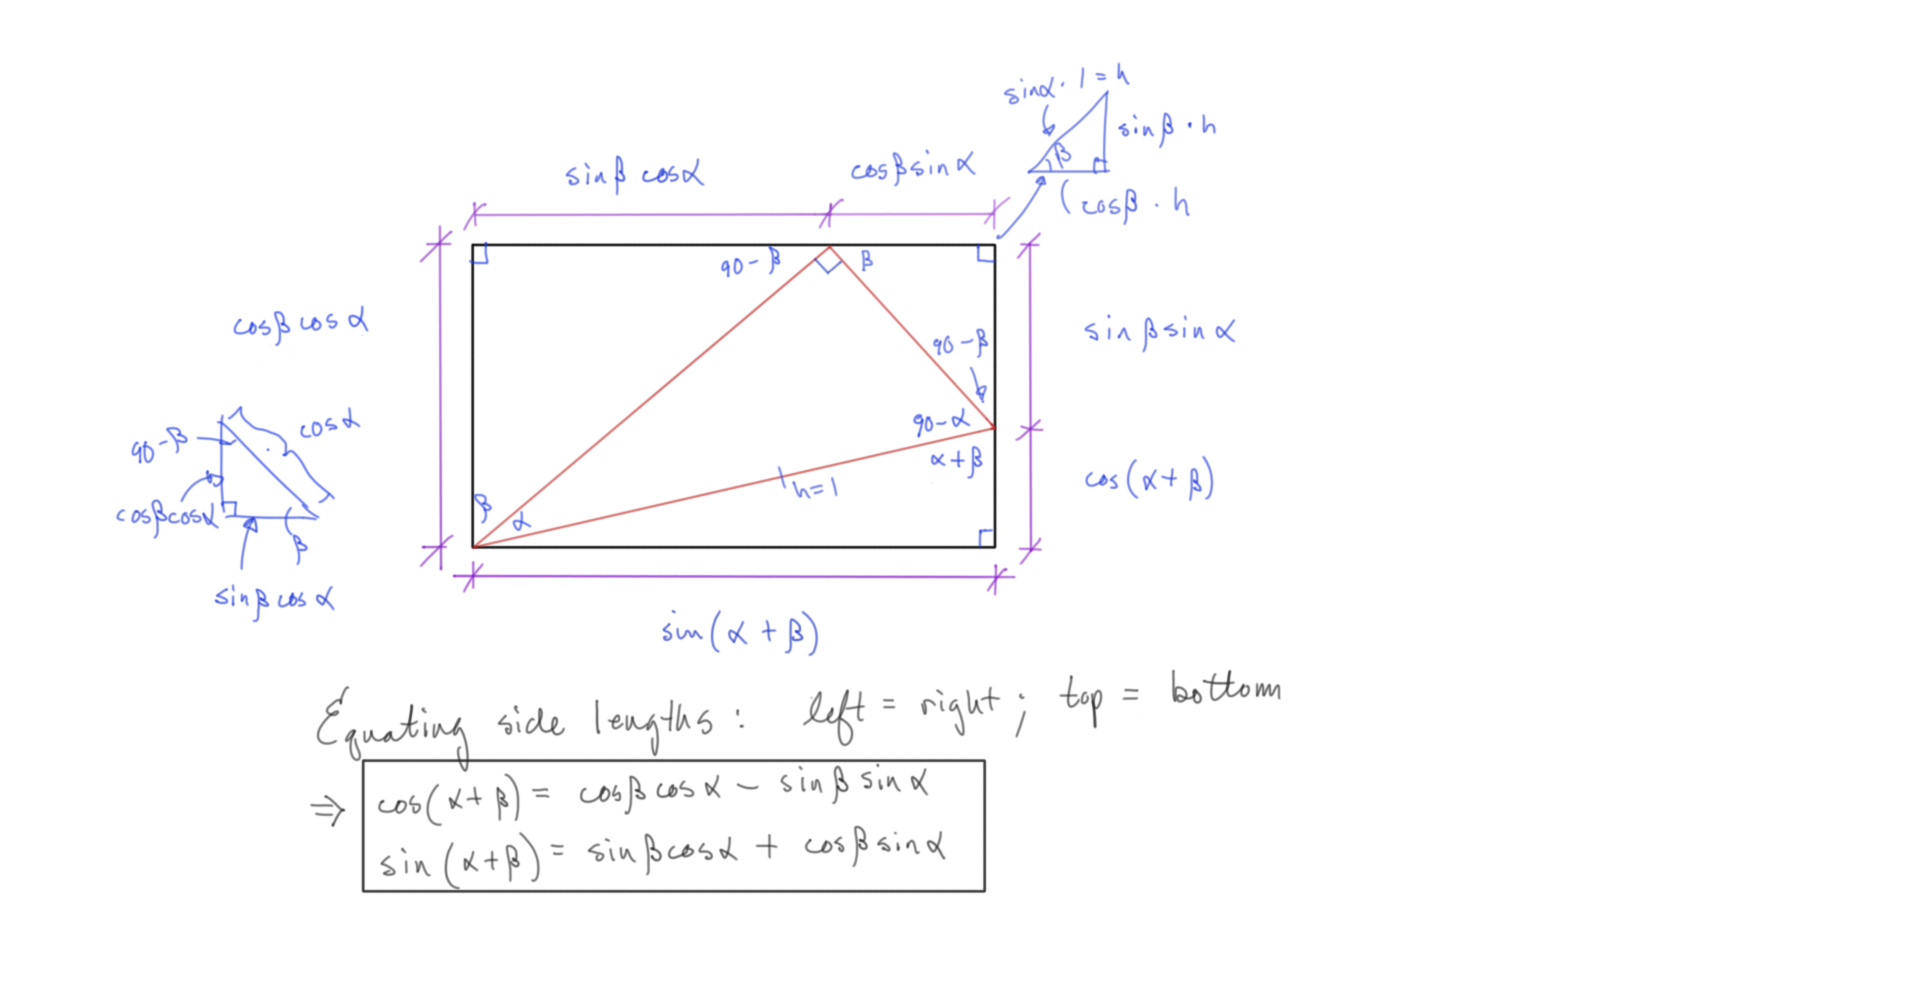 sinα · 1 = h
sinβ · h
β
(cosβ · h
sinβ cosα
cosβ sinα
90-β
β
cosβ cosα
sinβ sinα
90-β
90-α
α+β
h=1
cos(α+β)
β
α
cosα
90-β
cosβcosα
β
sinβ cosα
sin(α+β)
Equating side lengths: left = right; top = bottom
⇒ cos(α+β) = cosβ cosα - sinβ sinα
sin(α+β) = sinβcosα + cosβ sinα